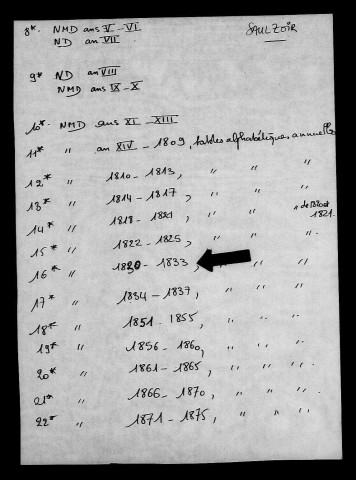 8*. NMD ans V - VI SAULZOIR
ND an VII
9* ND an VIII
NMD ans IX - X
10* NMD ans XI - XIII
11* " an XIV - 1809, tables alphabétiques annuelles
12* " 1810 - 1813, " " "
13* " 1814 - 1817, " " "
14* " 1818 - 1821 " " " 1821.
15* " 1822 - 1825, " " ".
16* " 1830 - 1833, " " "
17* " 1834 - 1837, " " "
18* " 1851 - 1855, " " "
19* " 1856 - 1860, " " "
20* " 1861 - 1865, " " "
21* " 1866 - 1870, " " "
22* " 1871 - 1875, " " ".